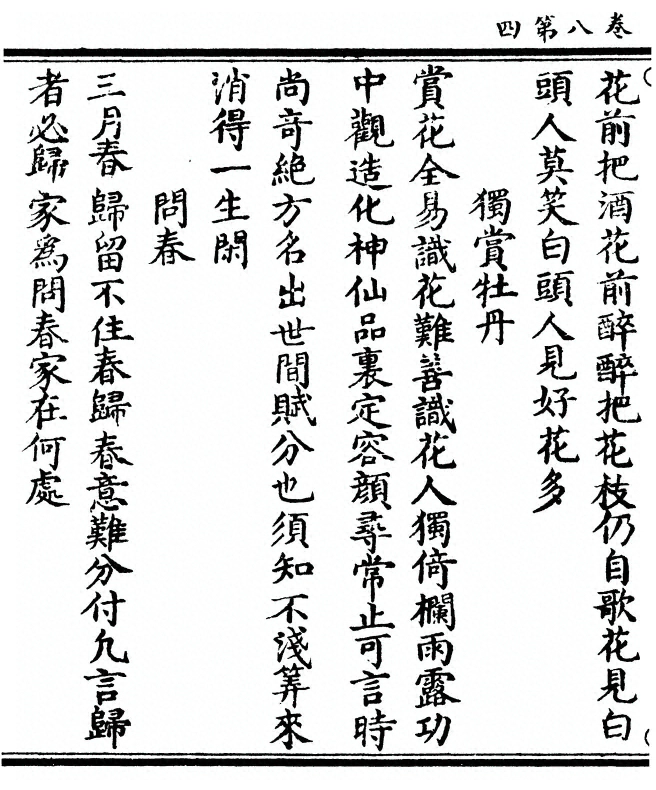 卷八第四
花前把酒花前醉醉把花枝仍自歌花見白
頭人莫笑白頭人見好花多
獨賞牡丹
賞花全易識花難善識花人獨倚欄雨露功
中觀造化神仙品裏定容顔尋常止可言時
尚竒絶方名出世間賦分也須知不淺筭來
消得一生閑
問春
三月春歸留不住春歸春意難分付凢言歸
者必歸家爲問春家在何處